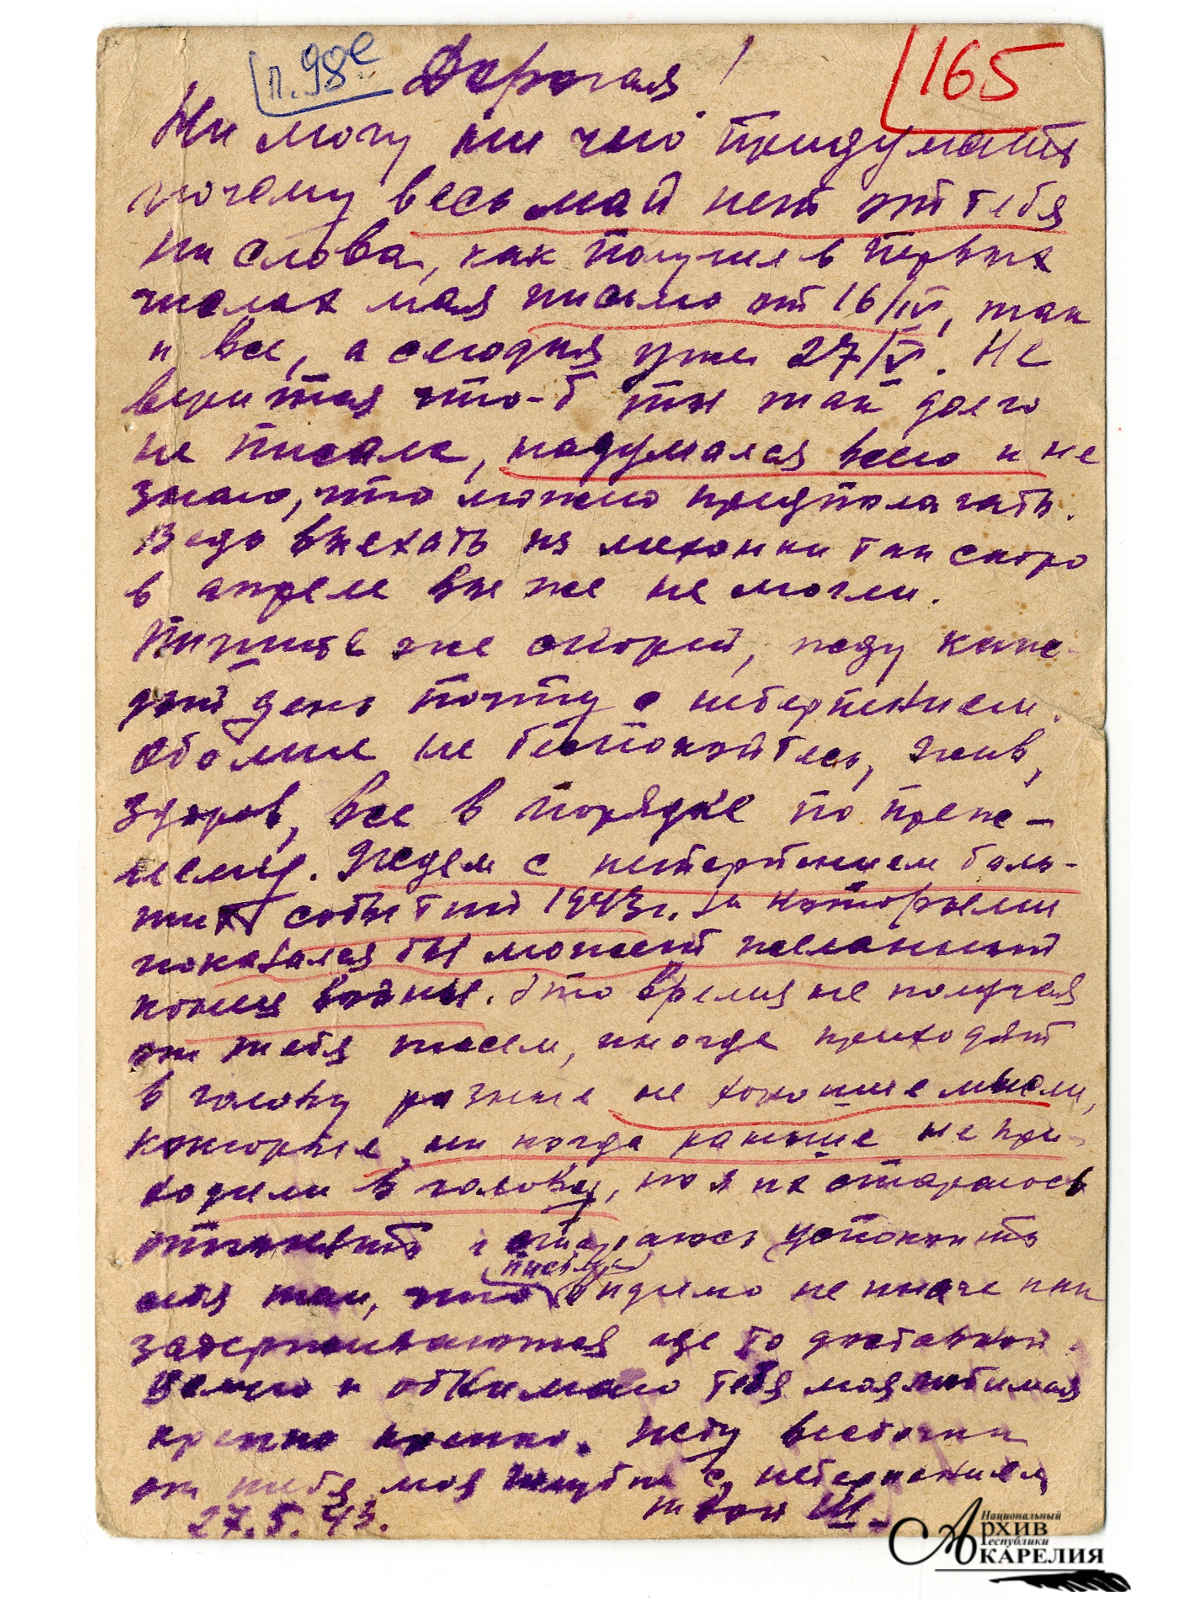 п. 98е
165
Дорогая!
Ни могу ни чего придумать
почему весь май нет от тебя
ни слова, как получил в первых
числах мая письмо от 16/IV, так
и все, а сегодня уже 27/V. Не
верится что-б ты так долго
не писала, надумался всего и не
знаю, что можно предполагать.
Ведь выехать из так скоро
в апреле вы же не могли.
Пишите же скорей, жду каж-
дый день почту с нетерпением.
Обо мне не беспокойтесь, жив,
здоров, все в порядке по преж-
нему. Ждем с нетерпением боль-
ших событий 1943 г. за которыми
показался бы может желанный
конец войны. Это время не получая
от тебя писем, иногда приходят
в голову разные не хорошие мысли,
которые ни когда раньше не при-
ходили в голову, но я их стараюсь
отгонять и стараюсь успокоить
себя тем, что письма видимо не иначе как
задерживаются где то доставкой.
Целую и обнимаю тебя моя любимая
крепко крепко. Жду весточки
от тебя моя голубка с нетерпением
27.5.43. твой Ш.
Национальный
Архив
Республики
Карелия